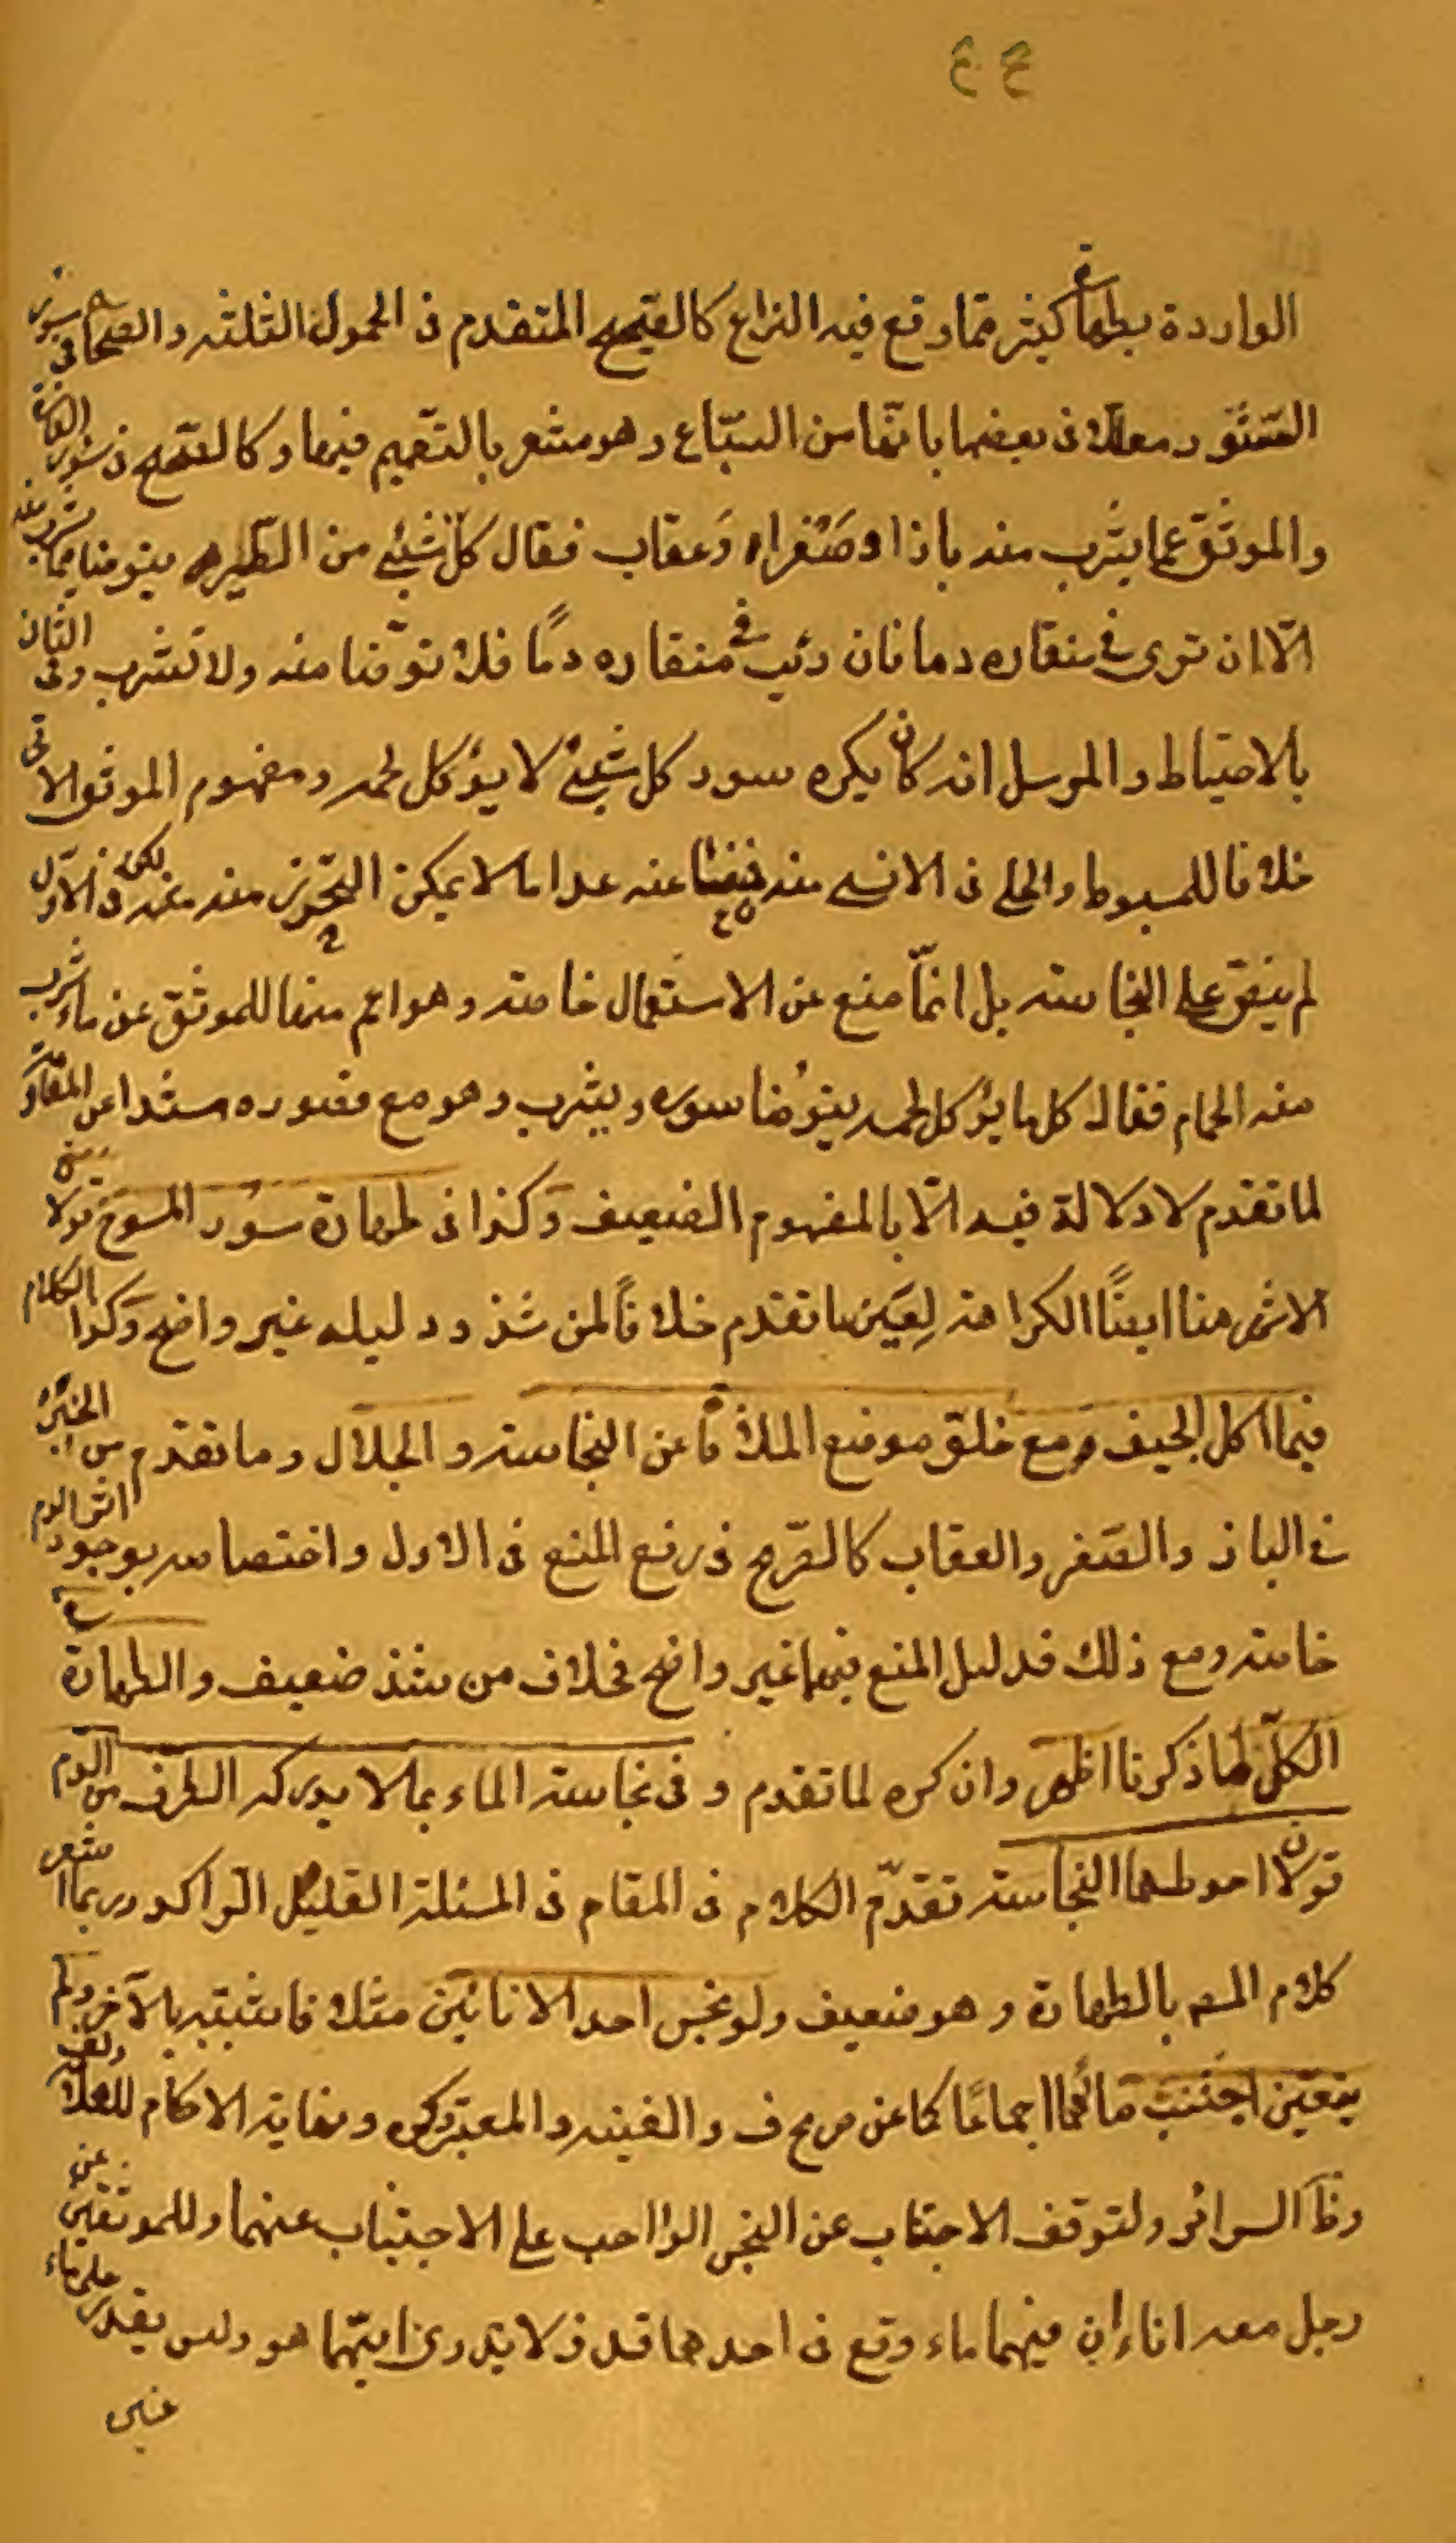 الواردة بطهارة كثير مما وقع فيه النزاع كالصحيح المتقدم فى الحمول الثلثة والصحاح فى سور
السنور معللا فى بعضها بانها من السباع وهو مشعر بالتعميم فيها وكالصحيح فى سور الفارة
والموثق عما يشرب منه باذ او صقر او عقاب فقال كل شيئ من الطير يتوضا مما يشرب منه
الا ان ترى فى منقاره دما فان رئيت فى منقاره دمًا فلا توضا منه ولا تشرب وفى الثانى
بالاحتياط والمرسل انه كان يكره سور كل شيئ لا يؤكل لحمه ومفهوم الموثق الاتى
خلافا للمبسوط والحلى فى الانسى منه فمنعا عنه عدا ما لا يمكن التحرز منه عنه لكن فى الاول
لم ينص على النجاسة بل انما منع عن الاستعمال خاصة وهو اعم منها للموثق عن ماء شرب
منه الحمام فقال كل ما يؤكل لحمه يتوضا سوره ويشرب وهو مع قصوره سندا عن المقاومة
لما تقدم لا دلالة فيه الا بالمفهوم الضعيف وكذا فى طهارة سور المسوخ قولان
الاشهر هنا ايضًا الكراهة لعين ما تقدم خلافًا لمن شذ ودليله غير واضح وكذا الكلام
فيما اكل الجيف مع خلو موضع الملاقاة عن النجاسة والجلال وما تقدم من الخبر
فى الباز والصقر والعقاب كالصريح فى رفع المنع فى الاول واختصاصه بوجود اثر الدم
خاصة ومع ذلك فدليل المنع فيهما غير واضح فخلاف من شذ ضعيف والطهارة
الكل لما ذكرنا اظهر وان كره لما تقدم و فى نجاسة الماء بما لا يدركه الطرف من الدم
قولان احوطهما النجاسة تقدم الكلام فى المقام فى المسئلة القليل الراكد وربما اشعر
كلام المصـ بالطهارة وهو ضعيف ولو نجس احد الانائين مثلا فاشتبه بالآخر ولم
يتعين اجتنب مائهما اجماعًا كما عن صريح ف والغنية والمعتبر وكره ونهاية الاحكام للعلامة ولف
وظا السرائر ولتوقف الاجتناب عن النجس الواجب على الاجتناب عنهما وللموثقين عن
رجل معه اناءان فيهما ماء وقع فى احدهما قذر لا يدرى ايهما هو وليس يقدر على ماء
غيره